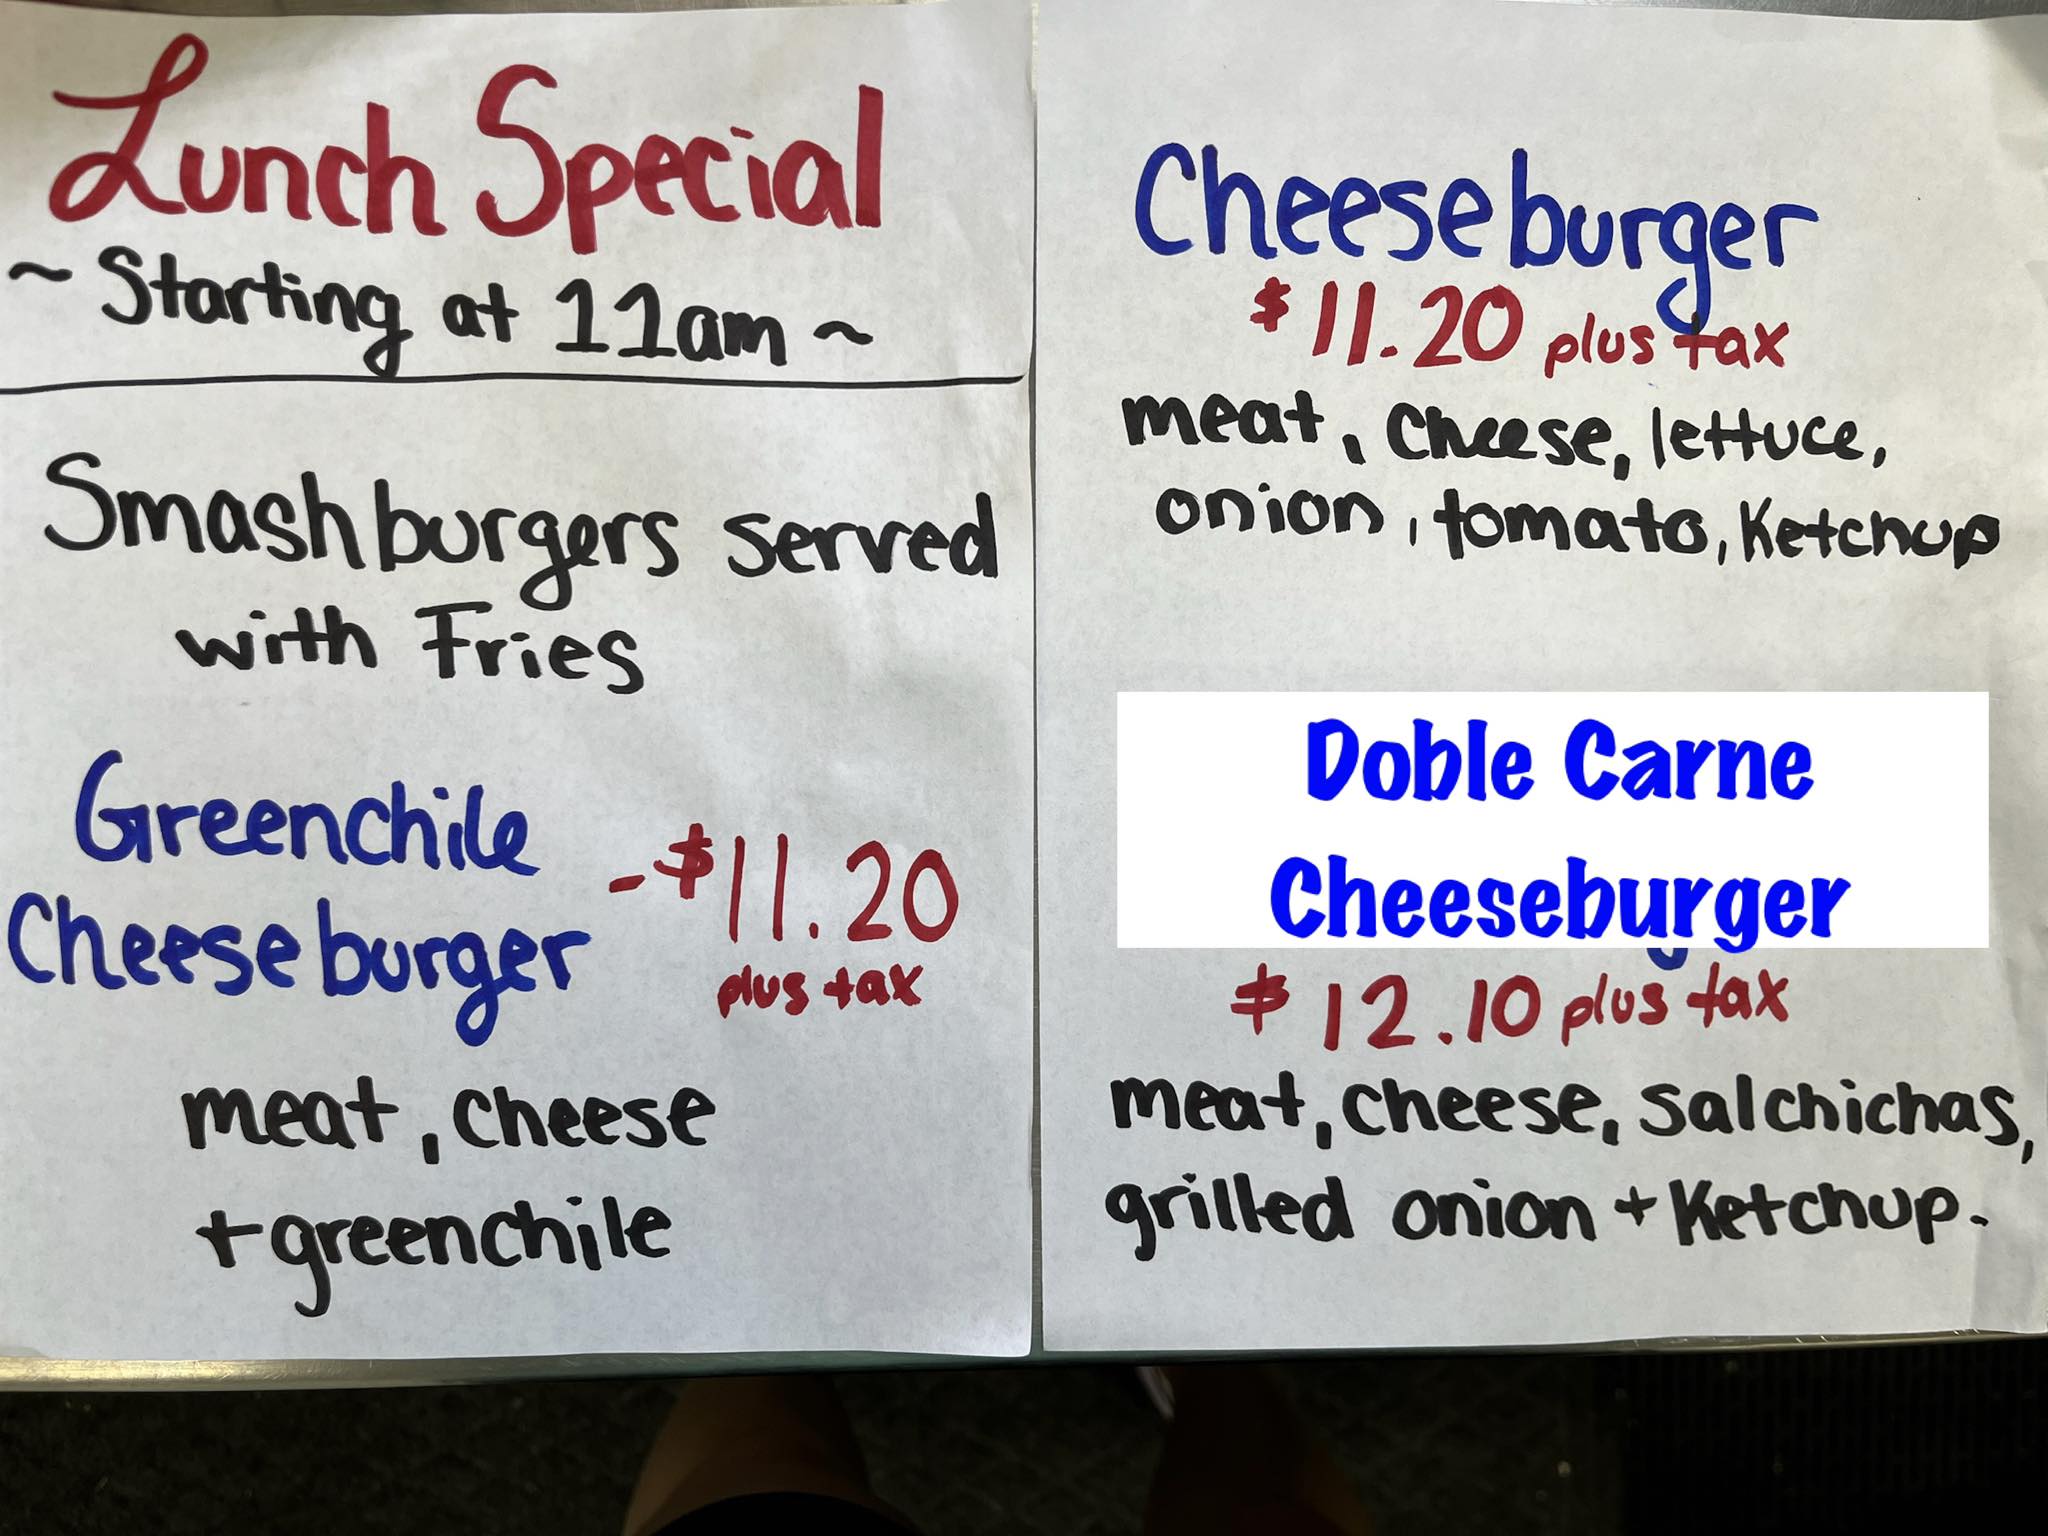 Lunch Special
~ Starting at 11am ~
Smashburgers served
with Fries
Greenchile
Cheeseburger
- $11.20
plus tax
meat, cheese
+ greenchile
Cheeseburger
$11.20 plus tax
meat, cheese, lettuce,
onion, tomato, Ketchup
Doble Carne
Cheeseburger
$12.10 plus tax
meat, cheese, salchichas,
grilled onion + Ketchup.